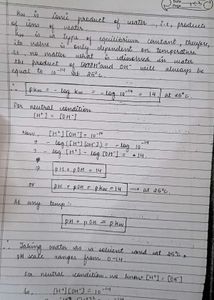 Kw is ionic product of water, i.e., products
of ions of water.
Kw is a type of equilibrium constant, therefore,
its value is only dependent on temperature
so no matter what is dissolved in water
the product of [H+] and [OH-] will always be
equal to 10^-14 at 25°C.
∴ pKw = - log Kw = - log 10^-14 = 14 at 25°C.
For neutral condition
[H+] = [OH-]
Now, [H+][OH-] = 10^-14
- log [H+][OH-] = - log 10^-14
- log [H+] - log [OH-] = 14
pH + pOH = 14
or pH + pOH = pKw = 14 → at 25°C.
At any temp:
pH + pOH = pKw
∴ Taking water as a solvent and at 25°C,
pH scale ranges from 0-14.
For neutral condition we know [H+] = [OH-]
[H+][OH-] = 10^-14